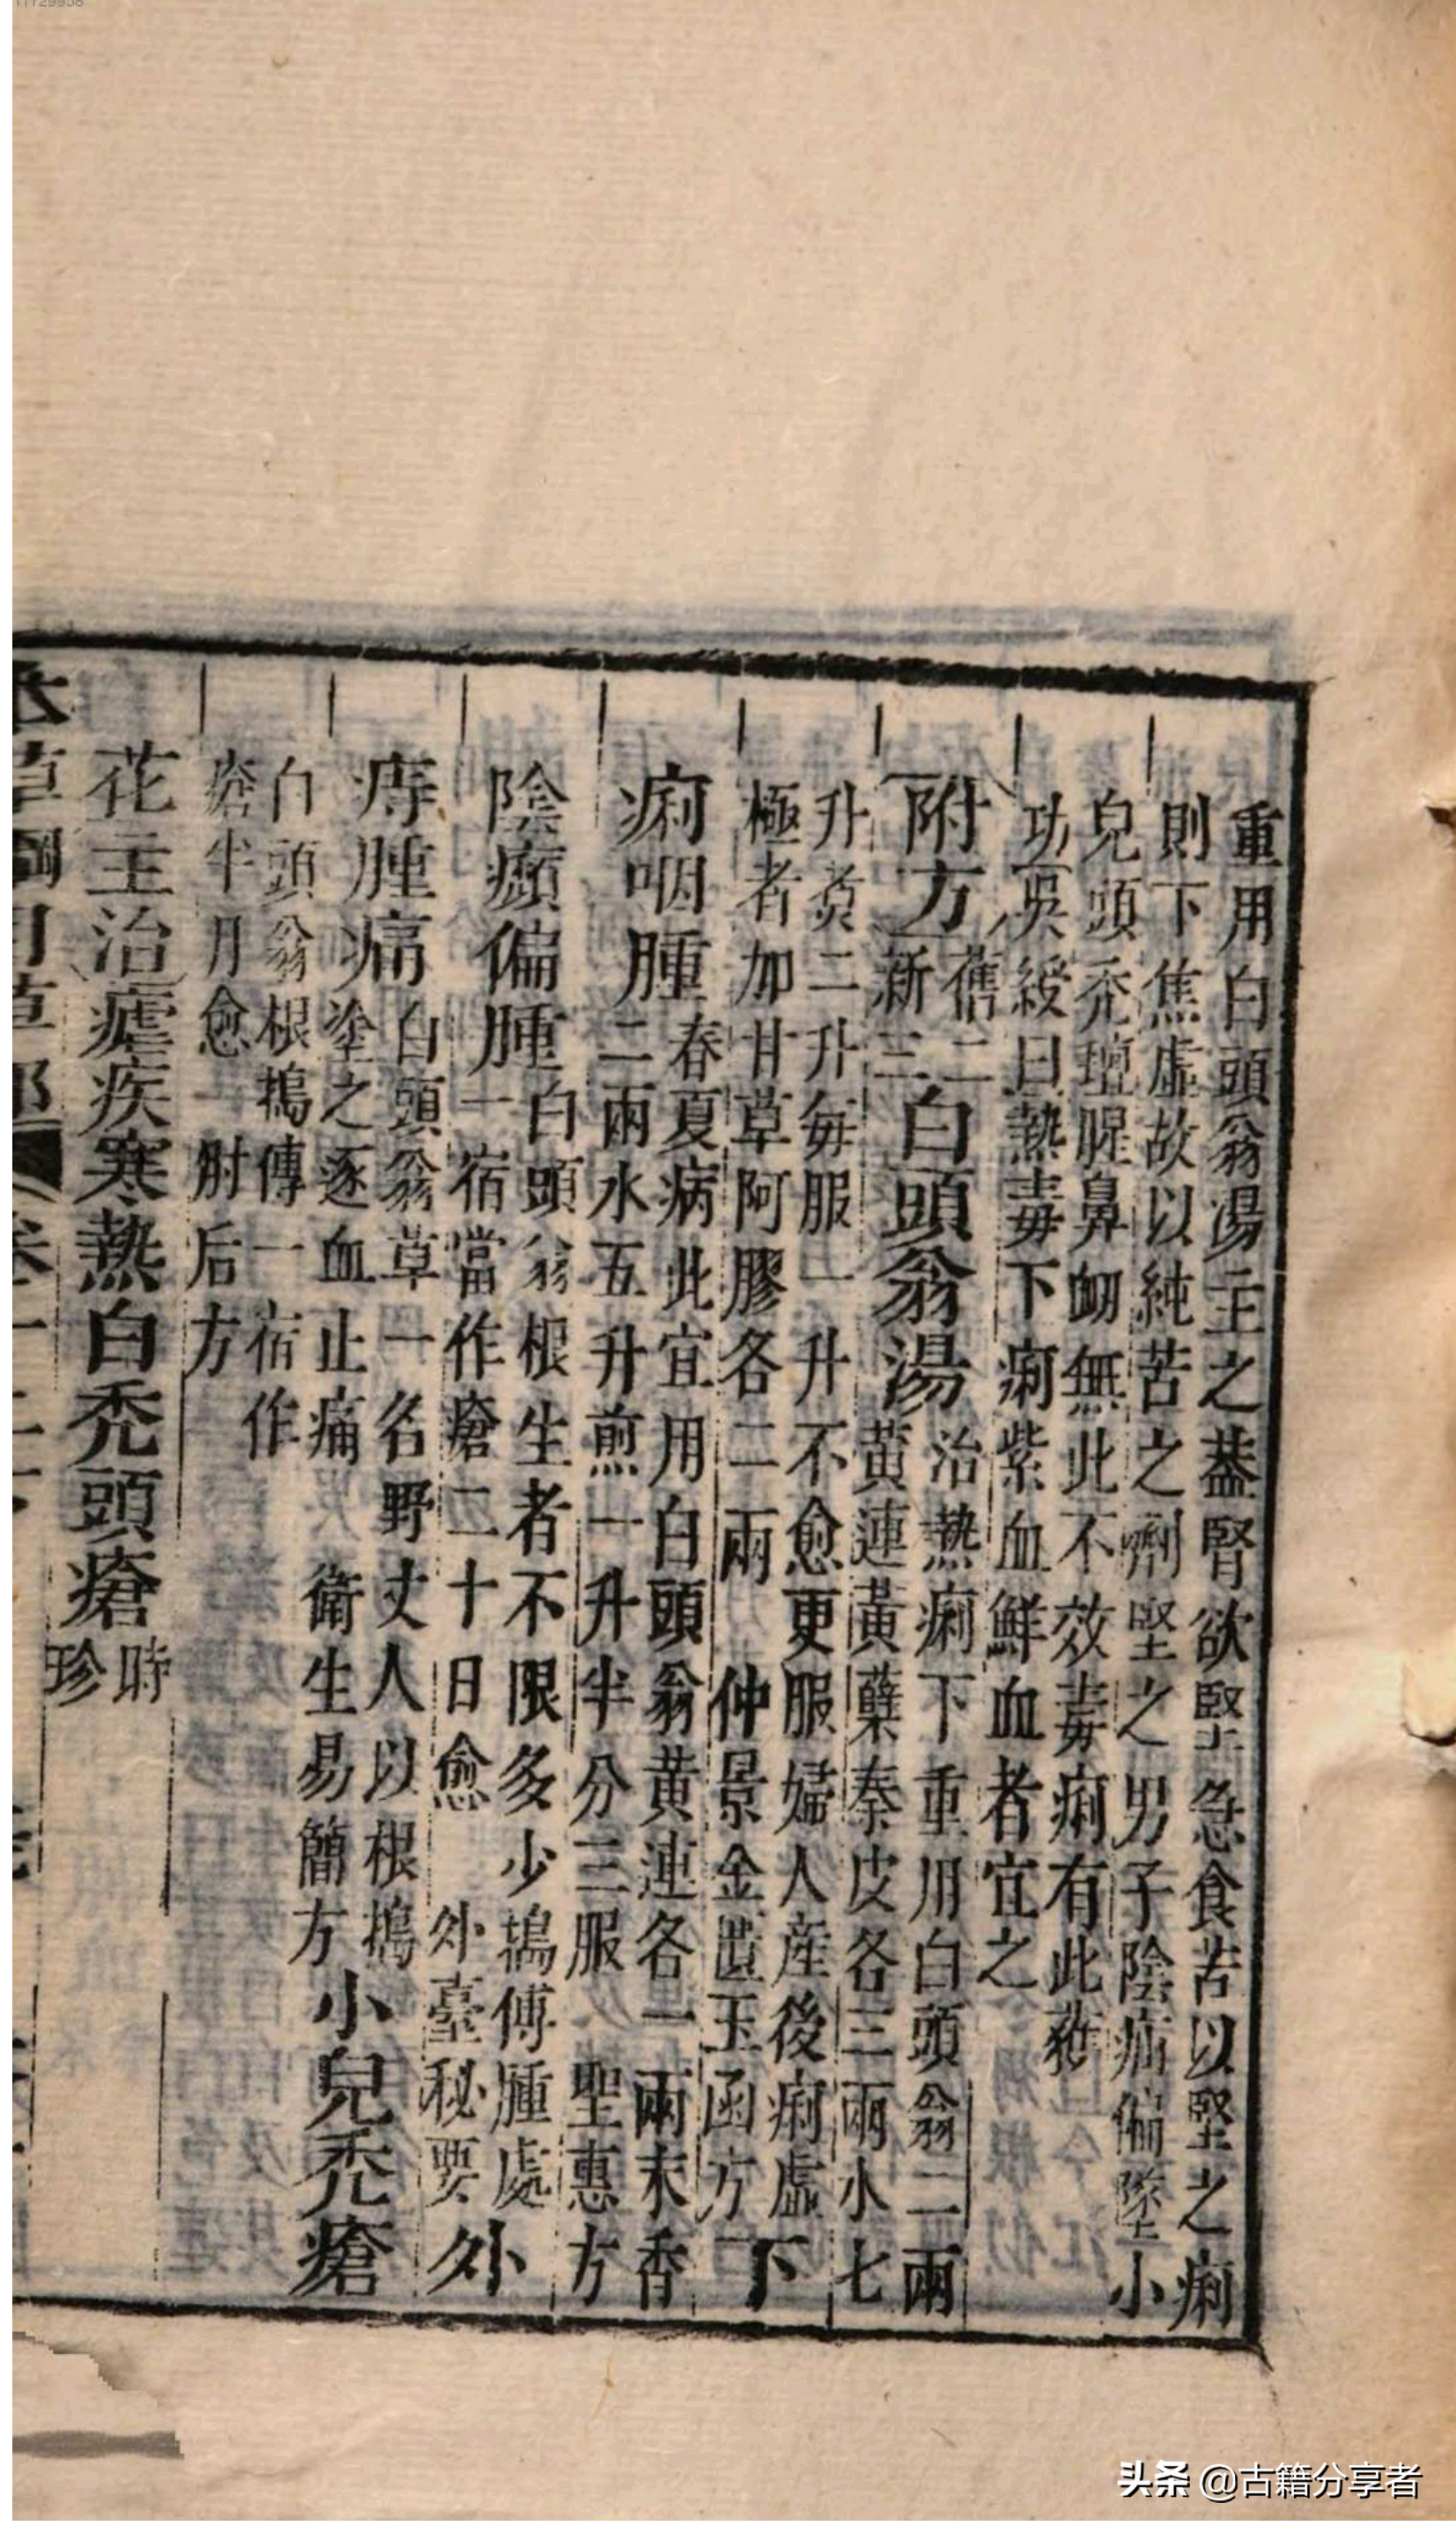 重用白頭翁湯主之葢腎欲堅急食苦以堅之痢
則下焦虛故以純苦之劑堅之男子陰疝偏墜小
兒頭禿羶腥鼻衂無此不效毒痢有此獲
功吳綬曰熱毒下痢紫血鮮血者宜之
附方舊二
新三白頭翁湯治熱痢下重用白頭翁二兩
黃連黃蘗秦皮各三兩水七
升煑二升每服一升不愈更服婦人產後痢虛
極者加甘草阿膠各二兩 仲景金匱玉函方下
痢咽腫春夏病此宜用白頭翁黃連各一兩末香
二兩水五升煎一升半分三服 聖惠方
陰㿗偏腫白頭翁根生者不限多少搗傅腫處
一宿當作瘡二十日愈 外臺秘要外
痔腫痛白頭翁草一名野丈人以根搗
塗之逐血止痛 衛生易簡方小兒禿瘡
白頭翁根搗傅一宿作
瘡半月愈 肘后方
花主治瘧疾寒熱白禿頭瘡時
珍